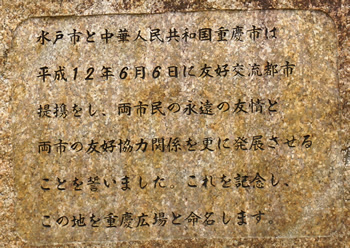 水戸市と中華人民共和国重慶市は
平成12年6月6日に友好交流都市
提携をし、両市民の永遠の友情と
両市の友好協力関係を更に発展させる
ことを誓いました。これを記念し、
この地を重慶広場と命名します。